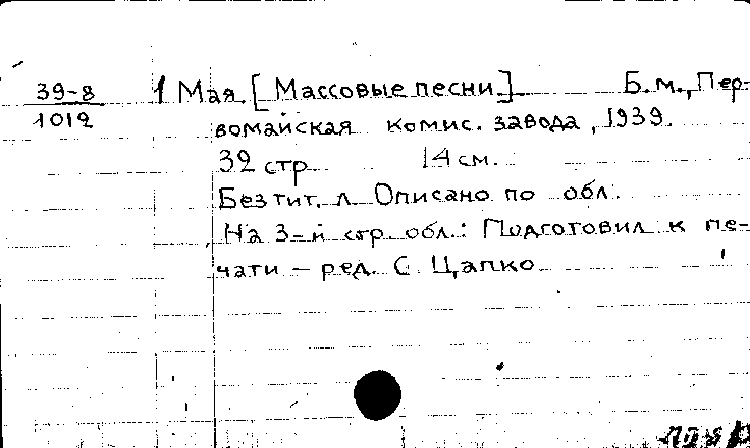 39-8
1012
1 Мая. [Массовые песни]. Б.м., Пер-
вомайская комис. завода, 1939.
32 стр 14 см.
Без тит. л. Описано по обл.
На 3-й стр. обл.: Подготовил к пе-
чати – ред. С. Цапко